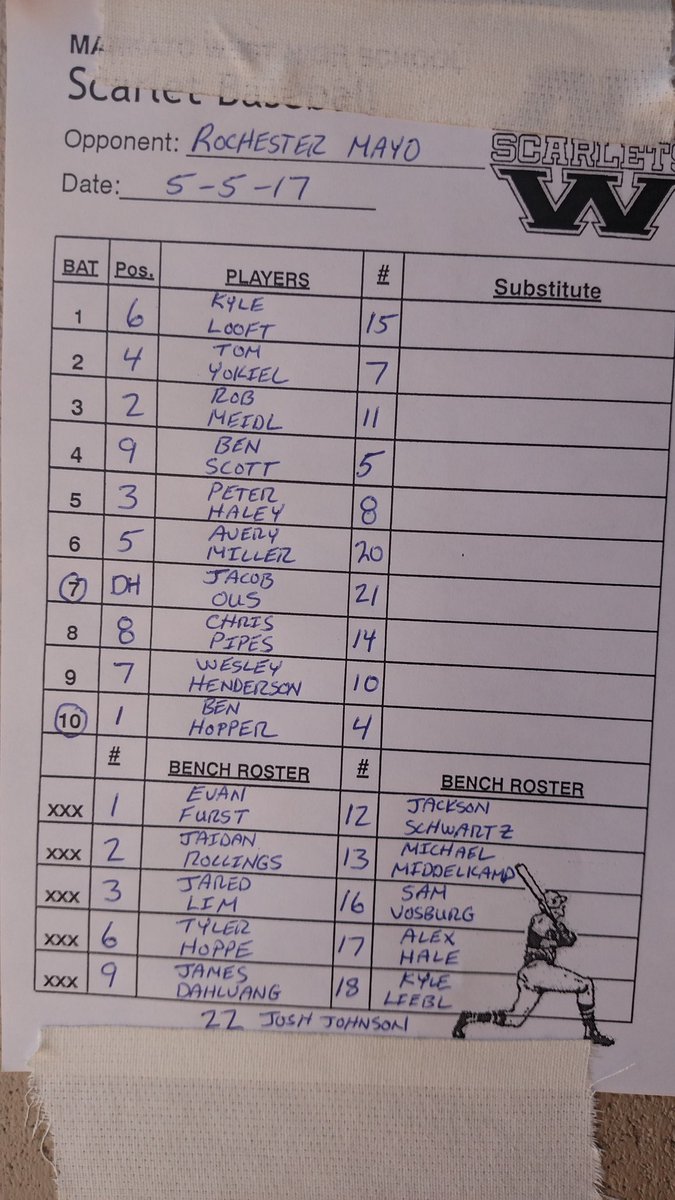 Scarlet Baseball
Opponent: ROCHESTER MAYO
SCARLETS
W
Date: 5-5-17
BAT Pos. PLAYERS # Substitute
1 6 KYLE LOOFT 15
2 4 TOM YOKIEL 7
3 2 ROB MEIDL 11
4 9 BEN SCOTT 5
5 3 PETER HALEY 8
6 5 AVERY MILLER 20
7 DH JACOB OUS 21
8 8 CHRIS PIPES 14
9 7 WESLEY HENDERSON 10
10 1 BEN HOPPER 4
# BENCH ROSTER # BENCH ROSTER
XXX 1 EVAN FURST 12 JACKSON SCHWARTZ
XXX 2 JAIDAN ROLLINGS 13 MICHAEL MIDDELKAMP
XXX 3 JARED LIM 16 SAM VOSBURG
XXX 6 TYLER HOPPE 17 ALEX HALE
XXX 9 JAMES DAHLVANG 18 KYLE LIEBL
22 JOSH JOHNSON